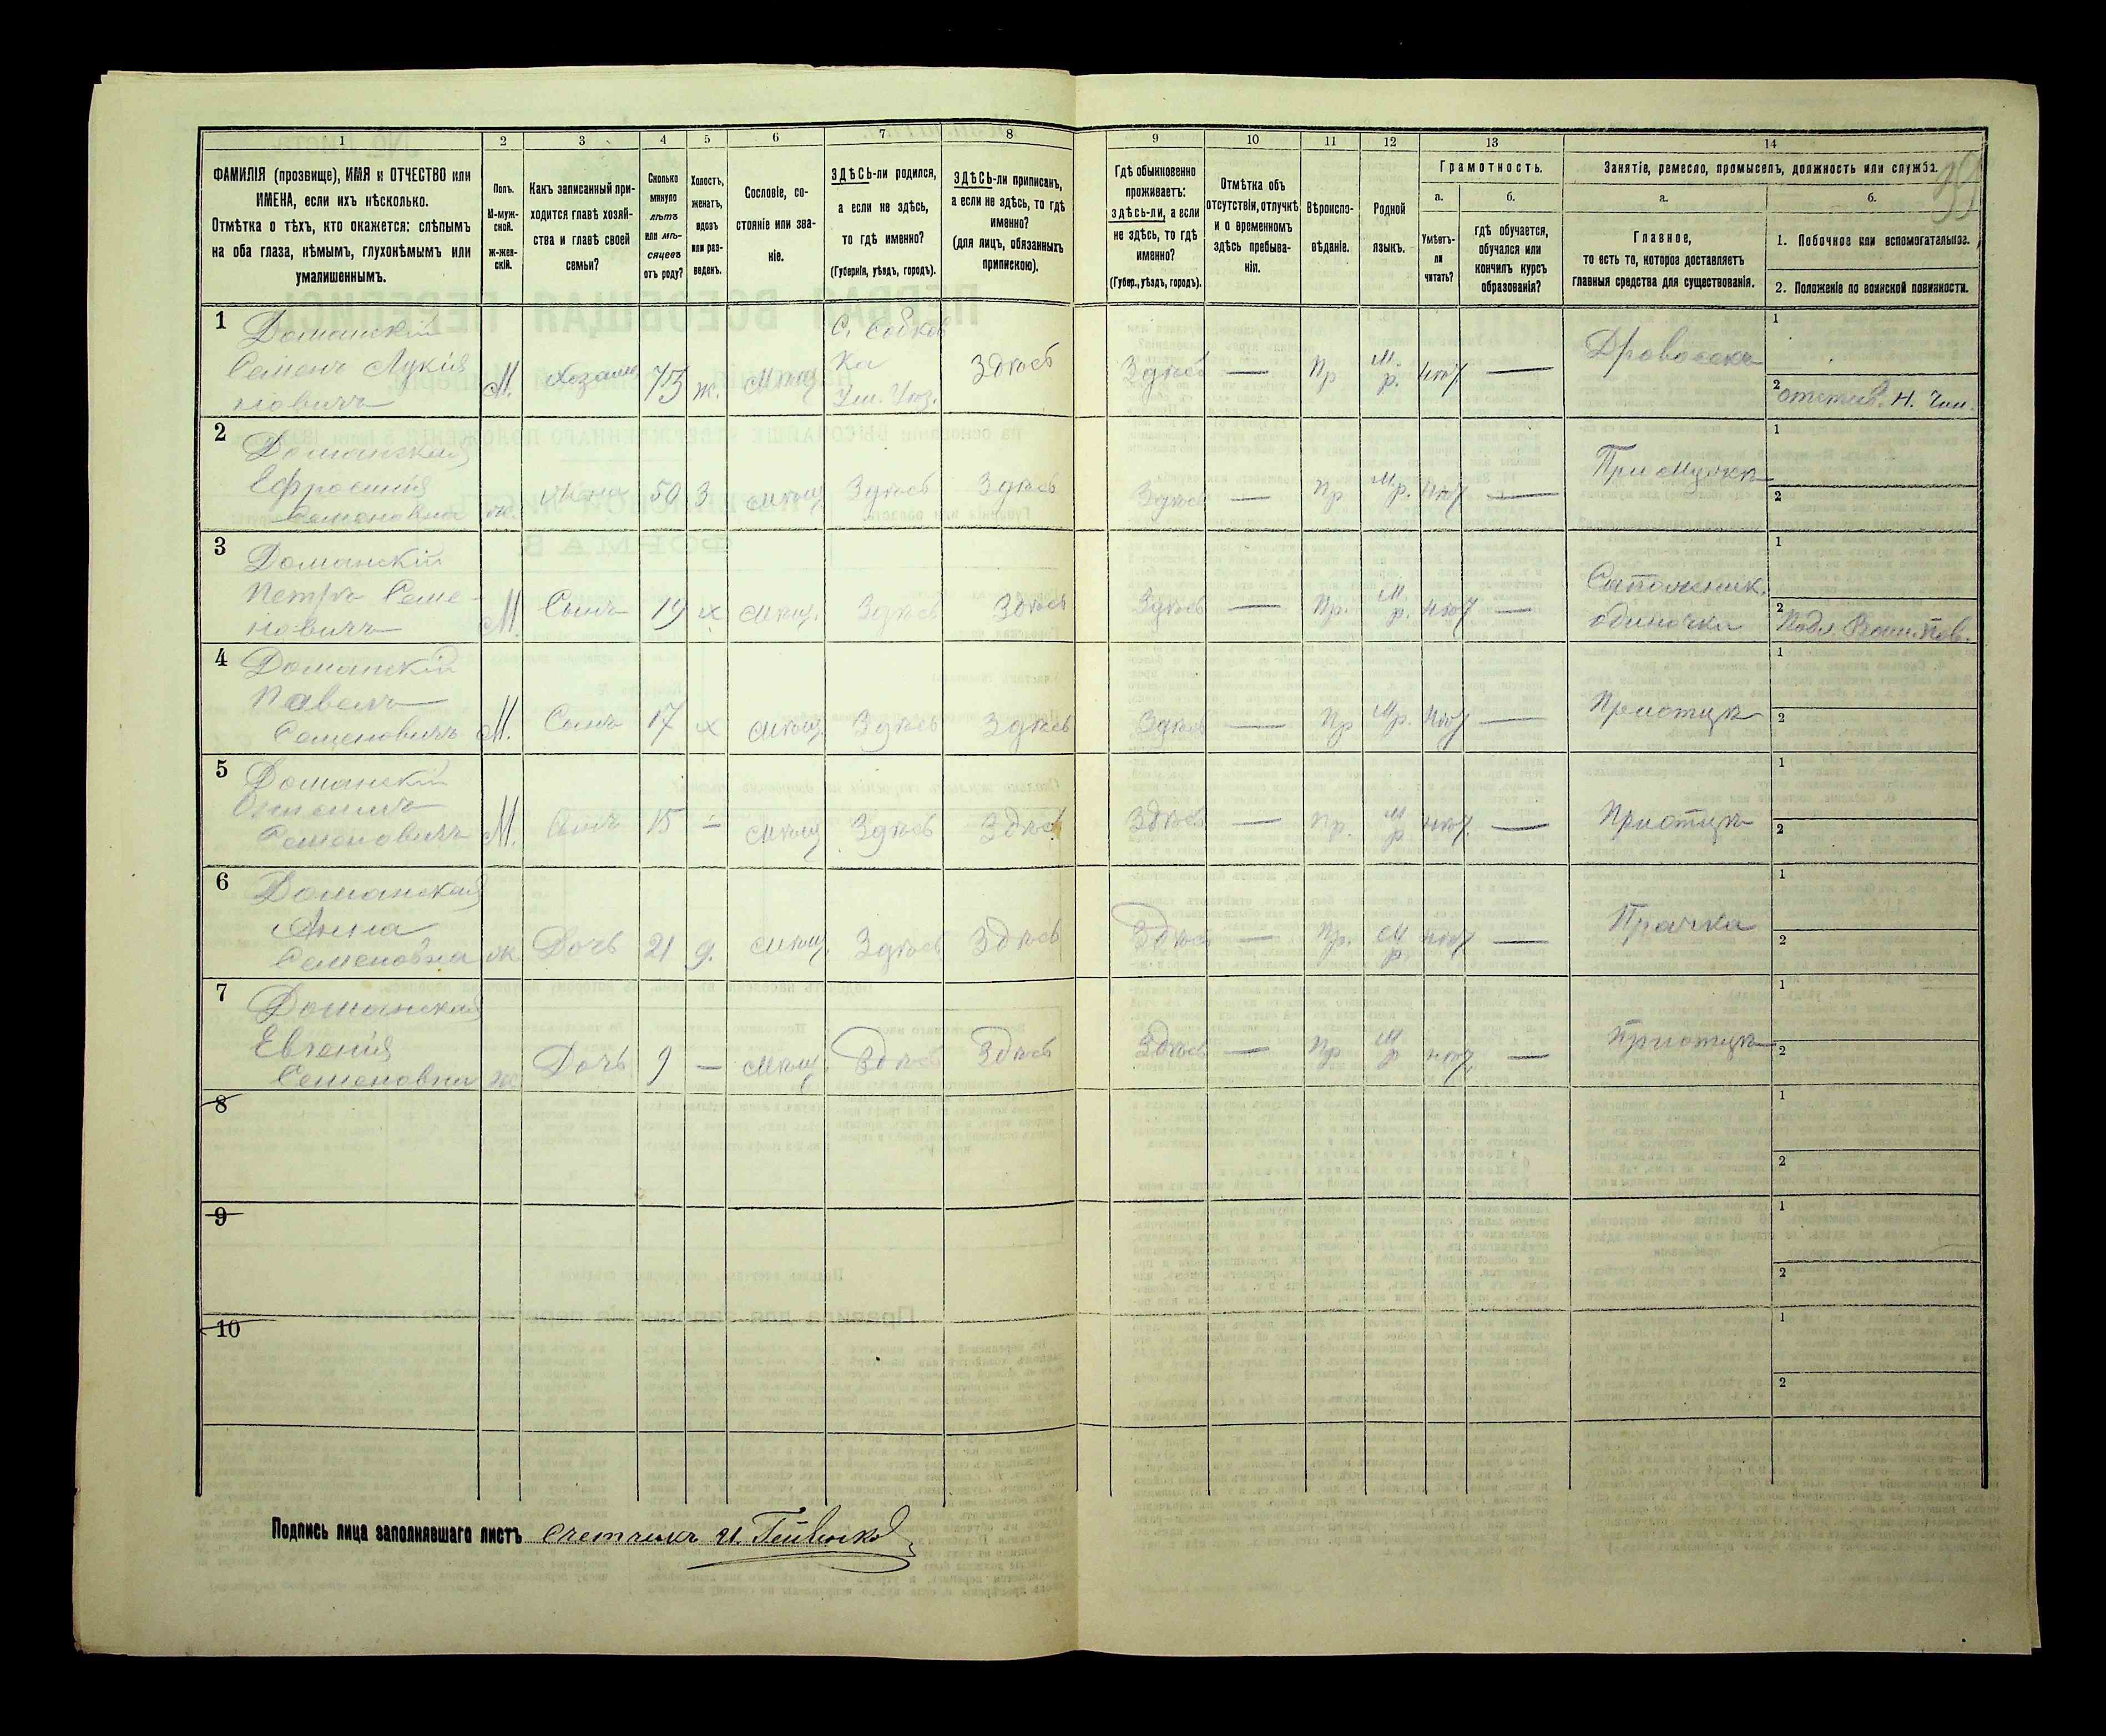 1
2
3
4
5
6
7
8
9
10
11
12
13
14
ФАМИЛІЯ (прозвище), ИМЯ и ОТЧЕСТВО или
ИМЕНА, если ихъ нѣсколько.
Отмѣтка о тѣхъ, кто окажется: слѣпымъ
на оба глаза, нѣмымъ, глухонѣмымъ или
умалишеннымъ.
Полъ.
М-муж-
ской.
ж-жен-
скій.
Какъ записанный при-
ходится главѣ хозяй-
ства и главѣ своей
семьи?
Сколько
минуло
лѣтъ
или мѣ-
сяцевъ
отъ роду?
Холостъ,
женатъ,
вдовъ
или раз-
веденъ.
Сословіе, со-
стояніе или зва-
ніе.
ЗДѢСЬ-ли родился,
а если не здѣсь,
то гдѣ именно?
(Губернія, уѣздъ, городъ).
ЗДѢСЬ-ли приписанъ,
а если не здѣсь, то гдѣ
именно?
(для лицъ, обязанныхъ
припискою).
Гдѣ обыкновенно
проживаетъ:
здѣсь-ли, а если
не здѣсь, то гдѣ
именно?
(Губер., уѣздъ, городъ).
Отмѣтка объ
отсутствіи, отлучкѣ
и о временномъ
здѣсь пребыва-
ніи.
Вѣроиспо-
вѣданіе.
Родной
языкъ.
Грамотность.
а.
Умѣетъ-
ли
читать?
б.
гдѣ обучается,
обучался или
кончилъ курсъ
образованія?
Занятіе, ремесло, промыселъ, должность или служба.
а.
Главное,
то есть то, которое доставляетъ
главныя средства для существованія.
б.
1. Побочное или вспомогательное.
2. Положеніе по воинской повинности.
1 Доманскій
Семенъ Лукія
новичъ
М. Хозяинъ 75 ж. Мѣщ
Здѣсь Здѣсь — Пр М. р. нѣт — Дровосекъ
1
2 отстав. Н. Чин.
2 Доманская
Ефросинія
Семеновна ж. Жена 50 З мѣщ Здѣсь Здѣсь Здѣсь — Пр М.р. нѣт —
1
2
3 Доманскій
Петръ Семе-
новичъ М Сынъ 19 х мѣщ. Здѣсь Здѣсь Здѣсь — Пр. М р. нѣт —
одиночка
1
2
4 Доманскій
Павелъ
Семеновичъ М. Сынъ 17 х мѣщ. Здѣсь Здѣсь Здѣсь — Пр М.р. нѣт —
1
2
5 Доманскій
Семеновичъ М. Сынъ 15 — мѣщ Здѣсь Здѣсь Здѣсь — Пр. М р нѣт —
1
2
6 Доманская
Анна
Семеновна ж Дочь 21 д. мѣщ. Здѣсь Здѣсь Здѣсь — Пр. М р нѣт — Прачка
1
2
7 Доманская
Евгенія
Семеновна ж Дочь 9 — мѣщ. Здѣсь Здѣсь Здѣсь — Пр М р нѣт —
1
2
8
1
2
9
1
2
10
1
2
Подпись лица заполнявшаго листъ Счетчикъ И.